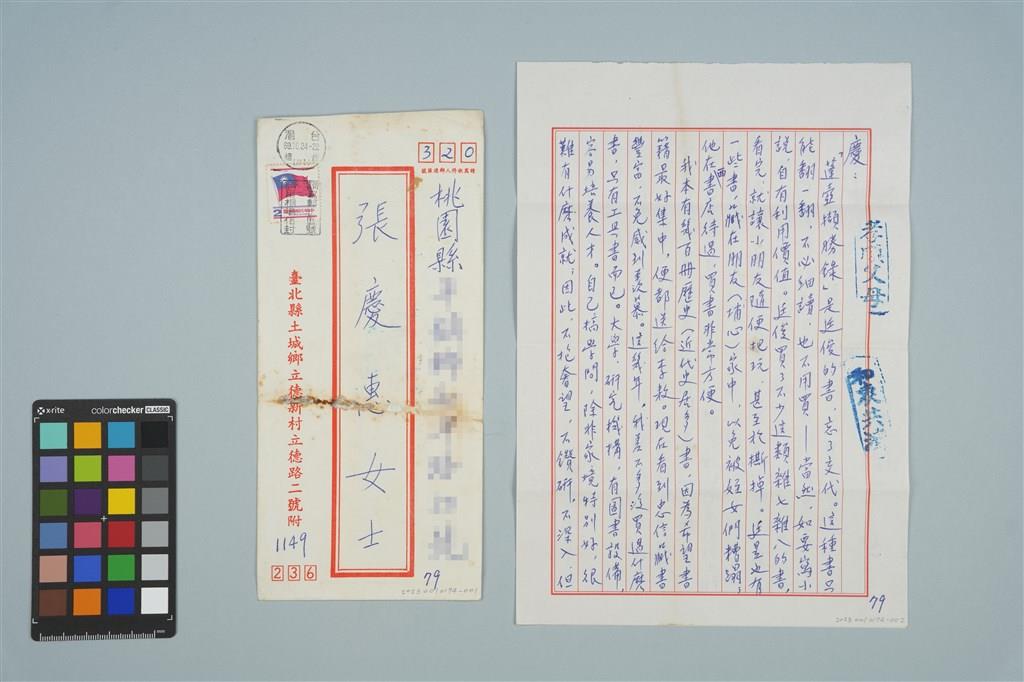 320
桃園縣
張慶惠女士
臺北縣土城鄉立德新村立德路二號附
1149
236
79
2023.001.0174-001
台
69.10.24-22
慶：
「蓬壺擷勝錄」是廷俊的書，忘了交代。這種書只
能翻一翻，不必細讀，也不用買——當然，如要寫小
說，自有利用價值。廷俊買了不少這類雜七雜八的書，
看完，就讓小朋友隨便把玩，甚至於撕掉。廷是也有
一些書，藏在朋友（埔心）家中，以免被姪女們糟蹋；
他在書店待過，買書非常方便。
我本有幾百冊歷史（近代史居多）書，因為希望書
籍最好集中，便都送給李敖。現在看到忠信藏書
豐富，不免感到羨慕。這幾年，我差不多沒買過什麼
書，只有工具書而已。大學、研究機構，有圖書設備，
容易培養人才。自己搞學問，除非家境特別好，很
難有什麼成就；因此，不抱奢望，不鑽研，不深入，但
孝順父母
79
2023.001.0174-002
x-rite
colorchecker CLASSIC
mm